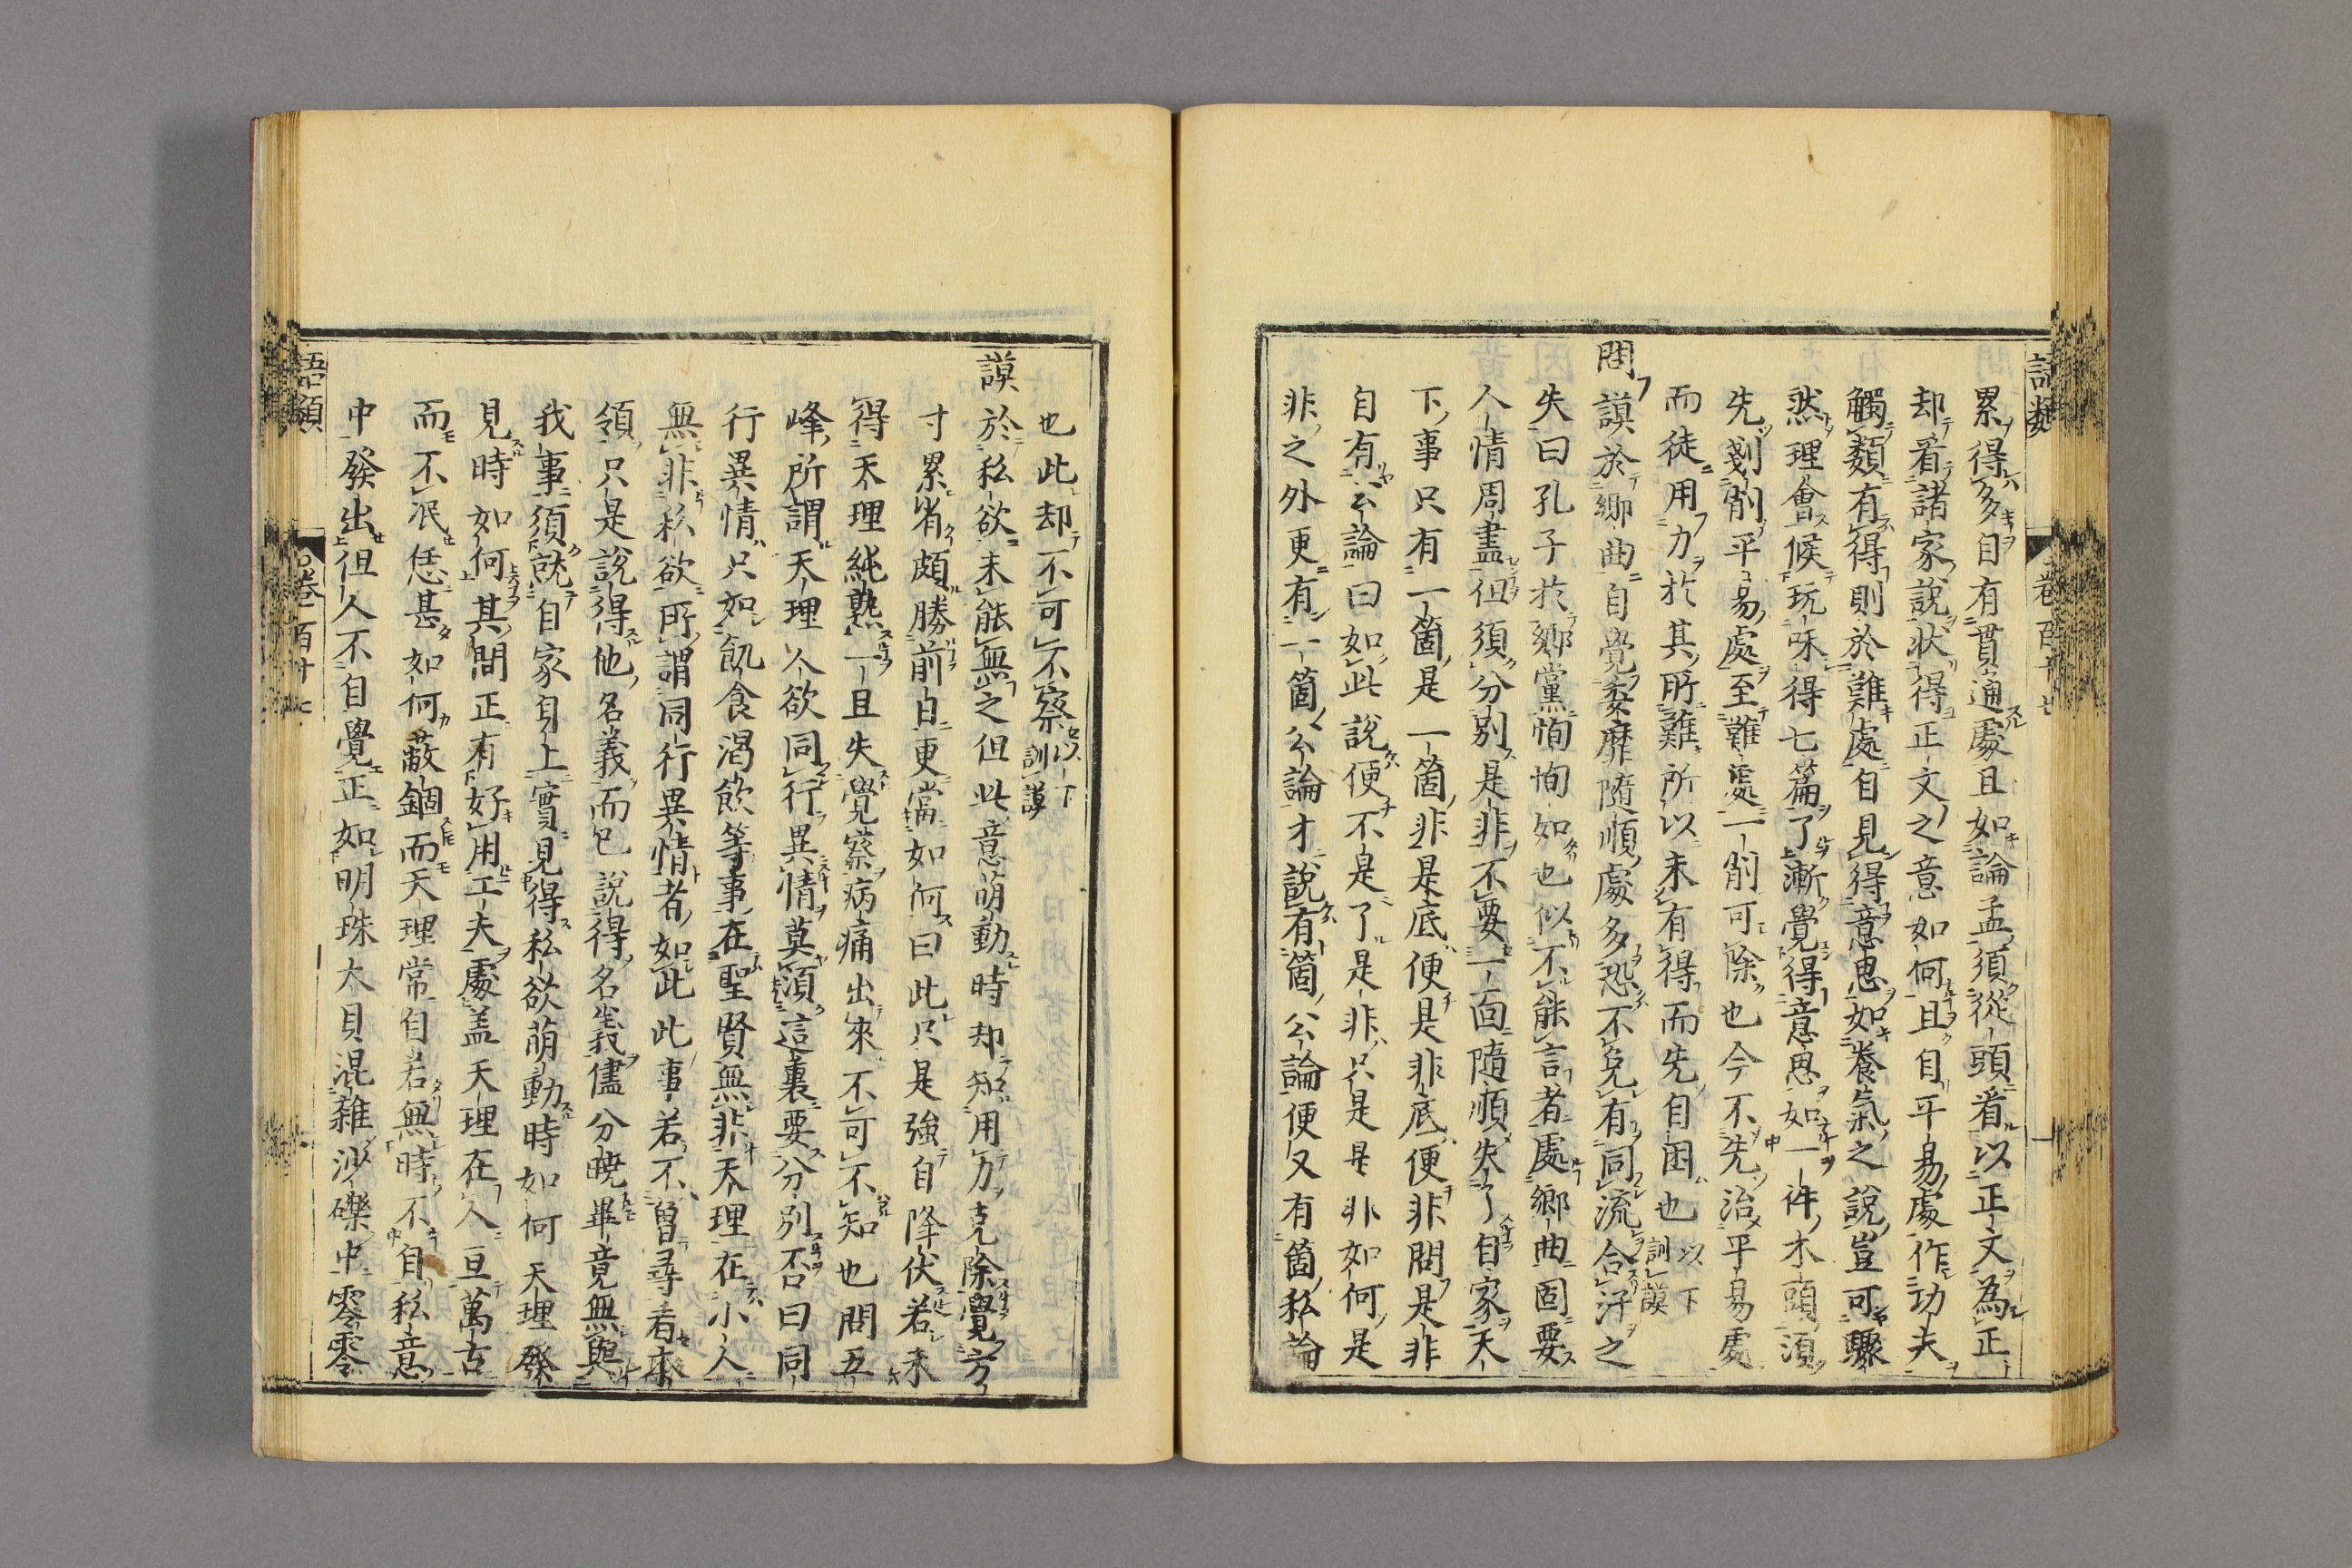 語類
卷百十七
累得多自有貫通處且如論孟須從頭看以正文為正
却看諸家說狀得正文之意如何且自平易處作功夫
觸類有得則於難處自見得意思如養氣之說豈可驟
然理會候玩味得七篇了漸覺得意思如一件木頭須
先剗削平易處至難處一削可除也今不先治平易處
而徒用力於其所難所以未有得而先自困也以下訓謨
問謨於鄉曲自覺委靡隨順處多恐不免有同流合汙之
失曰孔子於鄉黨恂恂如也似不能言者處鄉曲固要
人情周盡但須分別是非不要一面隨順失了自家天
下事只有一箇是一箇非是底便是非底便非問是非
自有公論曰如此說便不是了是非只是是非如何是
非之外更有一箇公論才說有箇公論便又有箇私論
也此却不可不察以下訓謨
謨於私欲未能無之但此意萌動時却知用力克除覺方
寸累省頗勝前日更當如何曰此只是強自降伏若未
得天理純熟一旦失覺察病痛出來不可不知也問五
峰所謂天理人欲同行異情莫須這裏要分別否曰同
行異情只如飢食渴飲等事在聖賢無非天理在小人
無非私欲所謂同行異情者如此此事若不曾尋着本
領只是說得他名義而已說得名義儘分曉畢竟無與
我事須就自家身上實見得私欲萌動時如何天理發
見時如何其間正有好用工夫處盖天理在人亘萬古
而不泯恁甚如何蔽錮而天理常自若無時不自私意
中發出但人不自覺正如明珠大貝混雜沙礫中零零
語類
卷一百十七